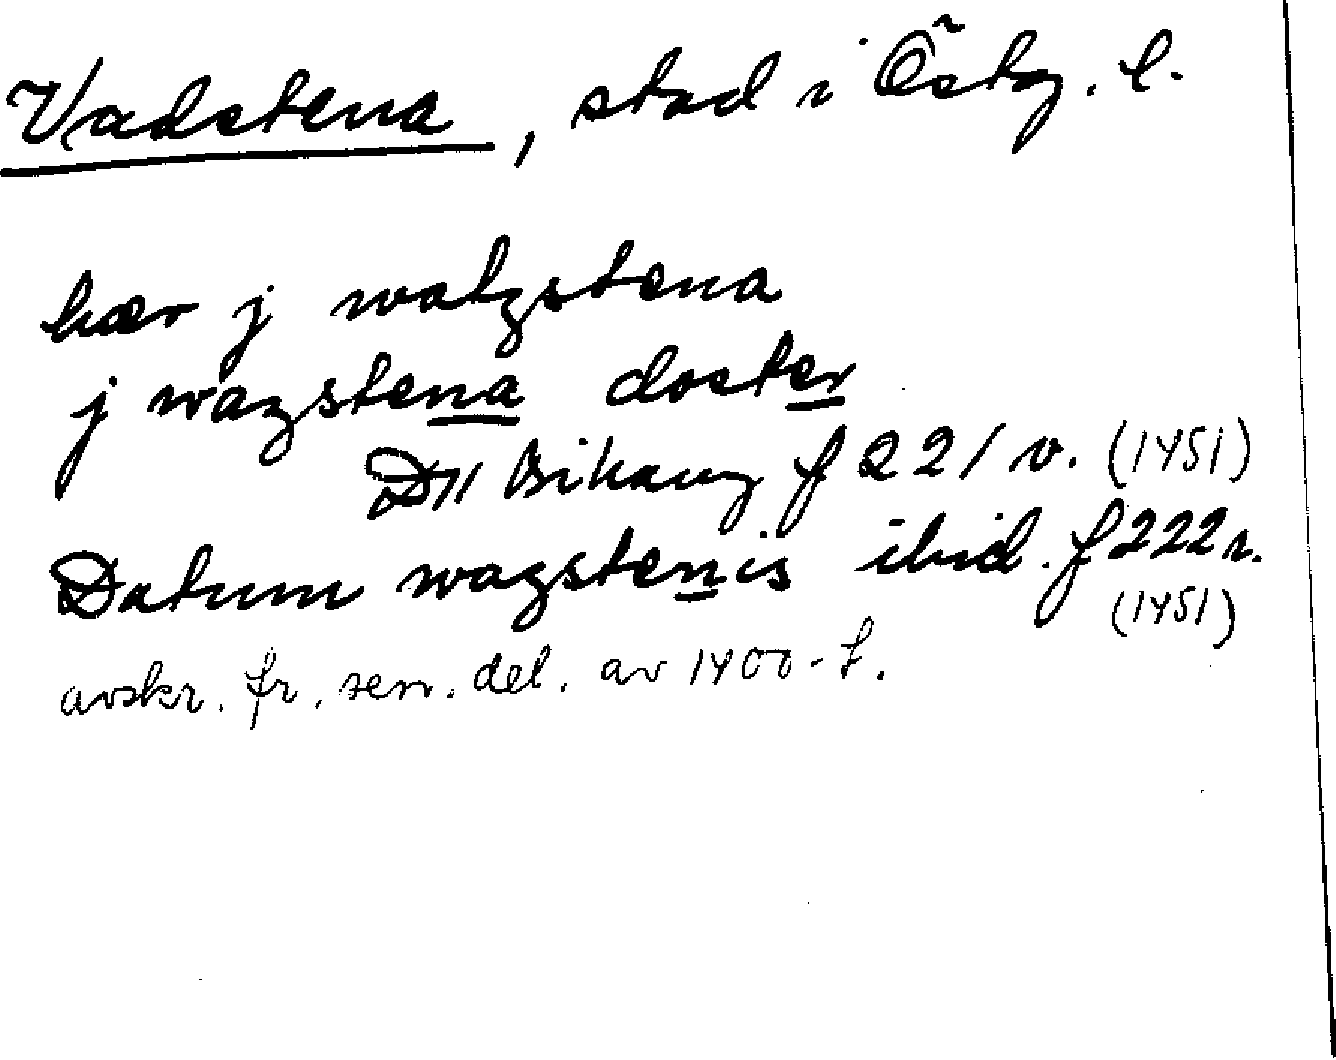 Vadstena, stad i Östg. l.
hær j watzstena
j wazstena closter
f 221 v. (1451)
Datum wazstenis ibid. f 222 r.
(1451)
avskr. fr. sen. del. av 1400-t.